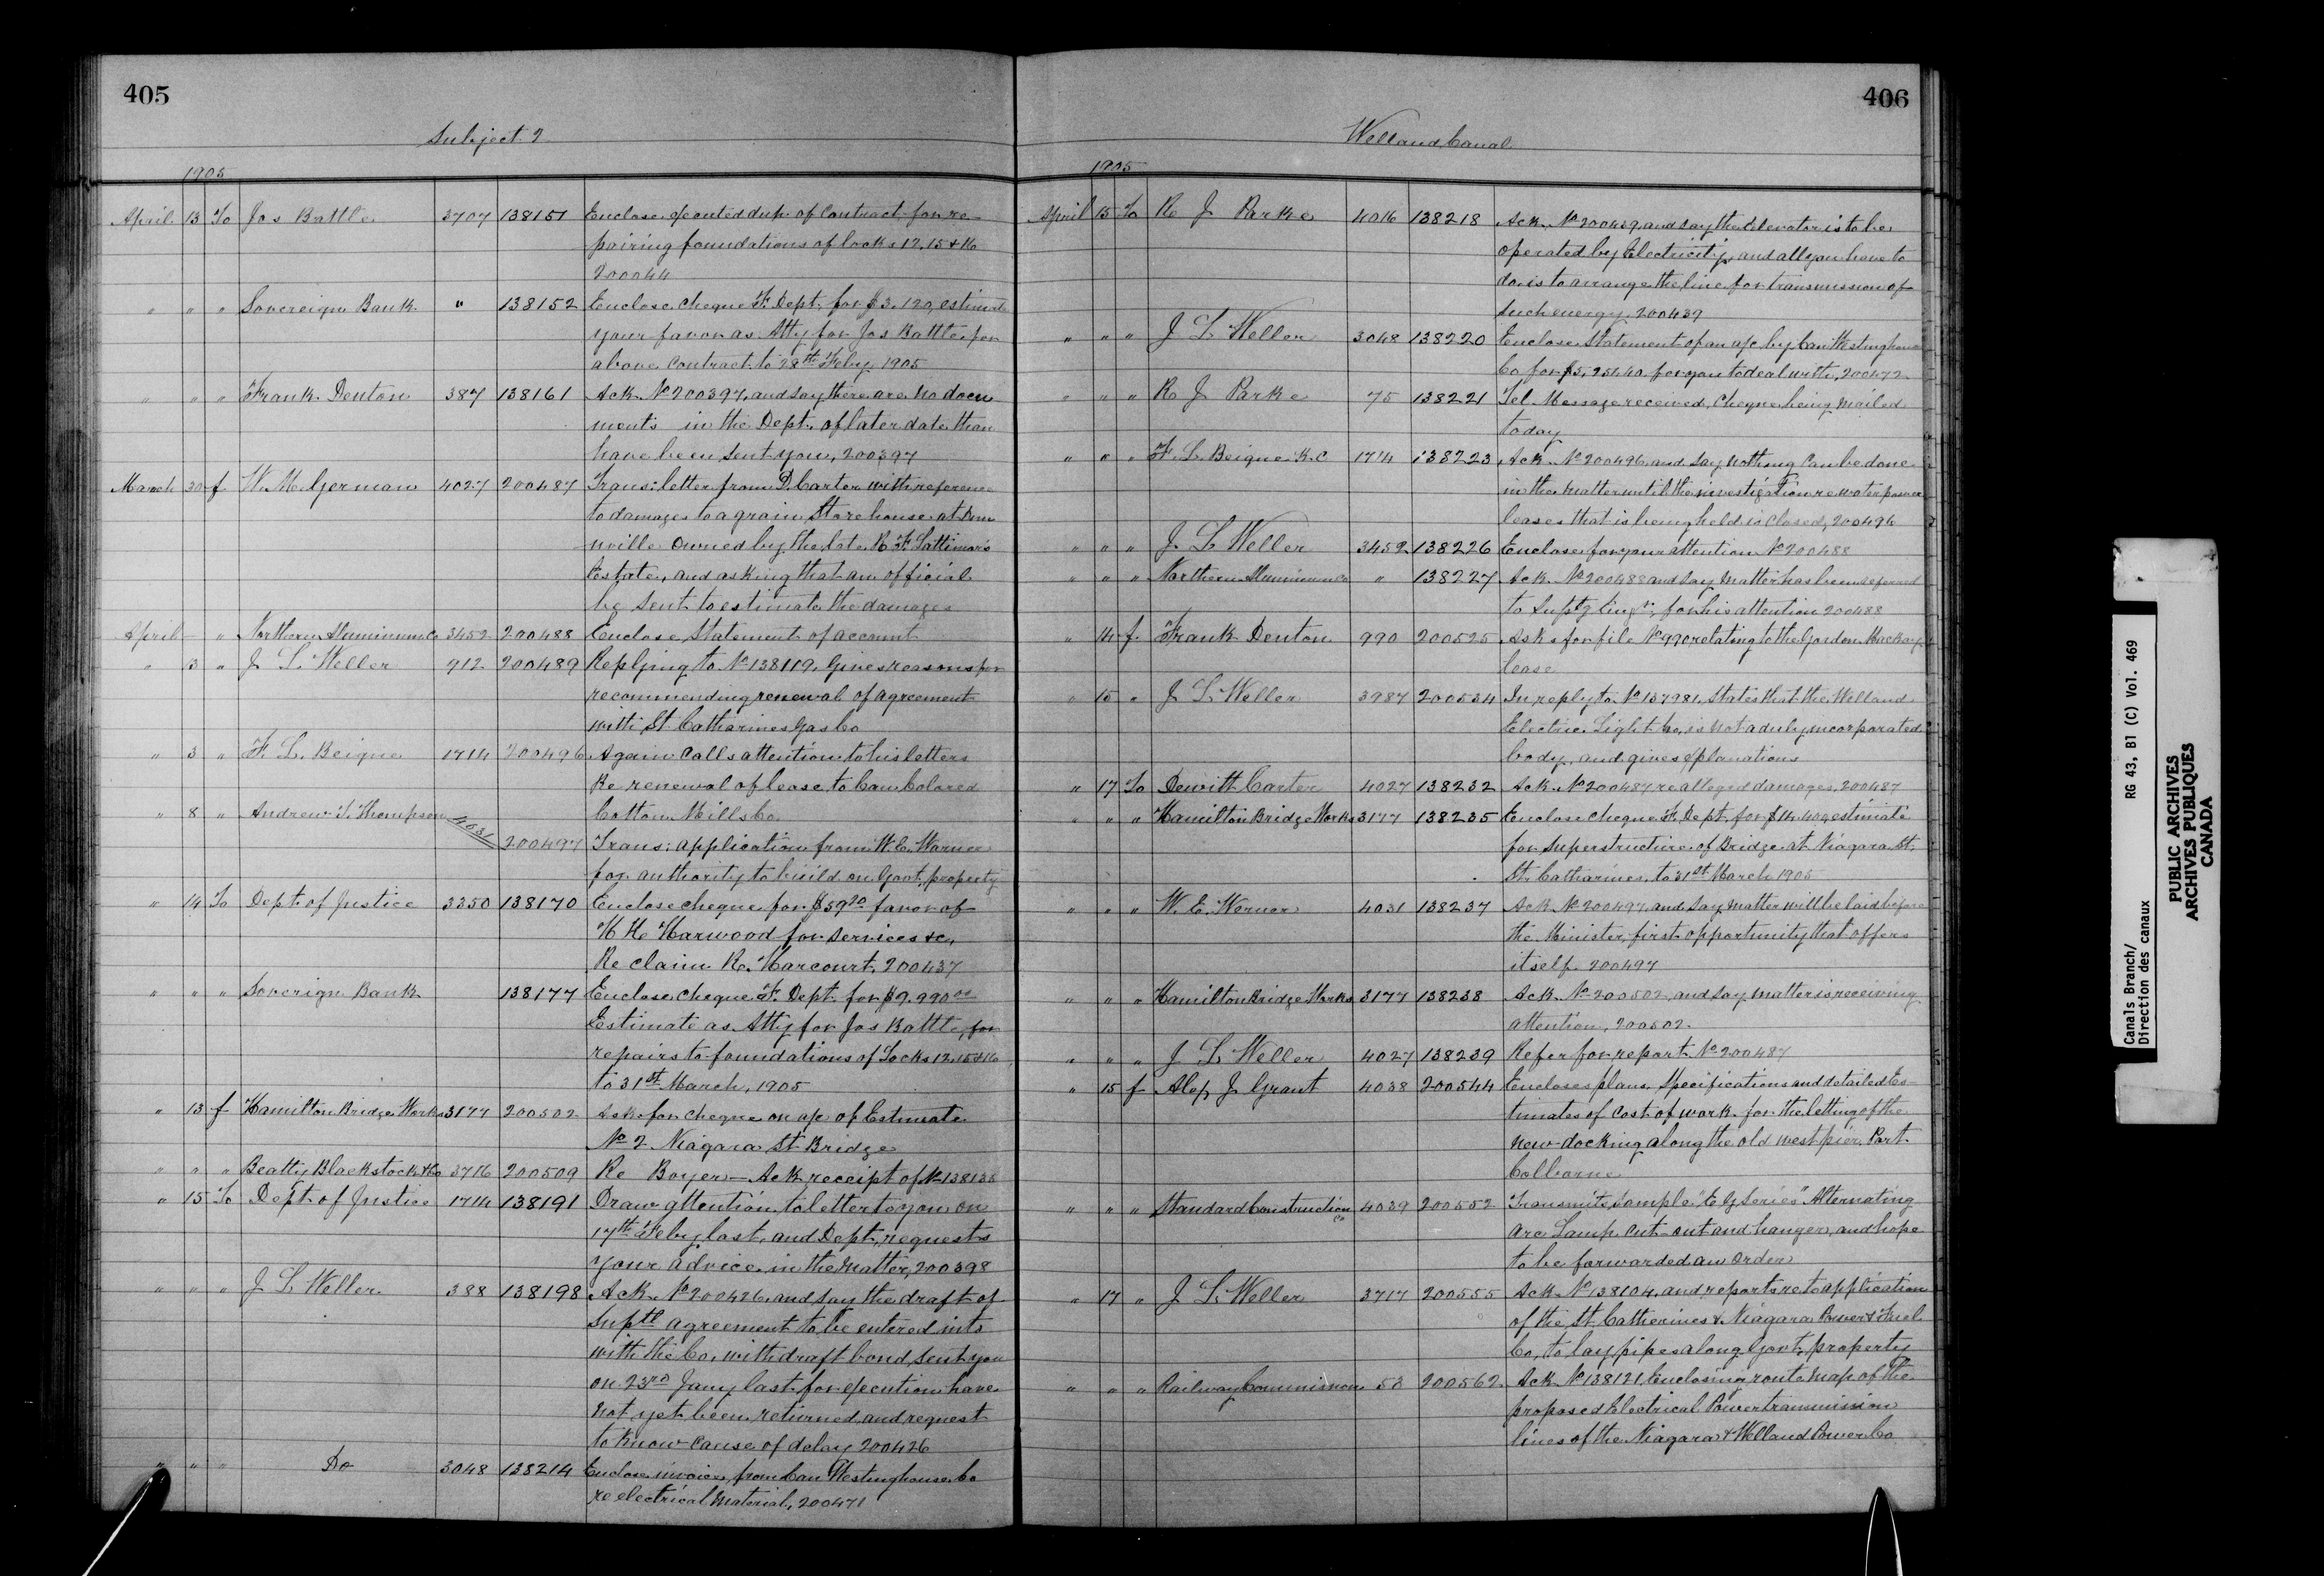 405
Subject 2
1905
April 13 To Jos Battle 3707 138151 Enclose executed dup. of Contract for re-
pairing foundations of locks 12, 15 & 16
200044
" " " Sovereign Bank " 138152 Enclose cheque F. Dept. for $3,120, estimate
your favor as Atty for Jos Battle, per
above contract to 28th Feby 1905
" " " Frank Denton 387 138161 Ack. No 200397, and say there are no docu
ments in the Dept. of later date than
have been sent you, 200397
March 30 f W. M. German 4027 200487 Trans: letter from D. Carter with reference
to damages to a grain Storehouse at Dun
nville owned by the late R. F. Lattimor's
Estate, and asking that an official
be sent to estimate the damages
April - " Northern Aluminum Co 3452 200488 Enclose Statement of account
" 3 " J L Weller 912 200489 Replying to No 138119, Gives reasons for
recommending renewal of agreement
with St. Catharines Gas Co
" 3 " F. L. Beique 1714 200496 Again calls attention to his letters
Re renewal of lease to Can Colored
Cotton Mills Co
" 8 " Andrew T. Thompson 4031 200497 Trans: application from W. E. Warner
for authority to build on Govt. property
" 14 To Dept of Justice 3350 138170 Enclose cheque for $59.20 favor of
H H Harwood for services &c,
Re claim R. Harcourt, 200437
" " " Soverign Bank 138177 Enclose cheque F. Dept. for $9.990.00
Estimate as Atty for Jos Battle, for
repairs to foundations of Locks 12, 15 & 16
to 31st March, 1905
" 13 f Hamilton Bridge Works 3177 200502 Ask for cheque on a/c of Estimate
No 2 Niagara St Bridge
" " " Beatty Blackstock & Co 3716 200509 Re Boyer - Ack. receipt of No 138138
" 15 To Dept of Justice 1714 138191 Draw attention to letter to you on
17th Feby last, and Dept. requests
your advice in the Matter, 200398
" " " J L Weller 388 138198 Ack. No 200426, and say the draft of
Suptl agreement to be entered into
with the Co, with draft bond, sent you
on 23rd Jany last for execution have
not yet been returned and request
to know cause of delay 200426
" " " Do 3048 138214 Enclose invoices from Can Westinghouse Co
re electrical material, 200471
406
Welland Canal
1905
April 15 To R J Parke 4016 138218 Ack. No 200439, and say the Elevator is to be
operated by Electricity, and all you have to
do is to arrange the line for transmission of
such energy, 200439
" " " J L Weller 3048 138220 Enclose Statement of an a/c by Can Westinghouse
Co for $5,254.40 for you to deal with, 200472
" " " R J Parke 75 138221 Tel Message received, Cheque being mailed
today
" " " F. L. Beique K.C 1714 138223 Ack. No 200496 and say nothing can be done
in the matter until the investigation re water power
leases that is being held is closed, 200496
" " " J. L Weller 3452 138226 Enclose for your attention No 200488
" " " Northern Aluminum Co " 138227 Ack. No 200488 and say matter has been referred
to Suptg Engr, for his attention 200488
" 14 f. Frank Denton 990 200525 Asks for file No 990 relating to the Gordon Mackay
lease
" 15 " J L Weller 3987 200534 In reply to No 137981, States that the Welland
Electric Light Co, is not a duly incorporated
body, and gives explanations
" 17 To Dewitt Carter 4027 138232 Ack. No 200487 re alleged damages, 200487
" " " Hamilton Bridge Works 3177 138235 Enclose cheque F. Dept. for $14,400, estimate
for superstructure of Bridge at Niagara St.
St. Catharines, to 31st March 1905
" " " W. E. Werner 4031 138237 Ack. No 200497, and say matter will be laid before
the Minister, first opportunity that offers
itself 200497
" " " Hamilton Bridge Works 3177 138238 Ack. No 200502, and say matter is receiving
attention, 200502
" " " J L Weller 4027 138239 Refer for report No 200487
" 15 f Alex J Grant 4038 200544 Encloses plans, Specifications and detailed Es-
timates of cost of work for the letting of the
new docking along the old west pier Port
Colborne
" " " Standard Construction Co 4039 200552 Transmits sample "E G Series" Alternating
Arc Lamp cut-out and hanger, and hope
to be forwarded an order
" 17 " J L Weller 3717 200555 Ack. No 138104, and reports re to application
of the St. Catherines & Niagara Power & Fuel
Co, to lay pipes along Govt. property
" " " Railway Commission 53 200562 Ack No 138121, Enclosing route map of the
proposed Electrical Power transmission
lines of the Niagara & Welland Power Co
Canals Branch/ RG 43, B1 (C) Vol. 469
Direction des canaux
PUBLIC ARCHIVES
ARCHIVES PUBLIQUES
CANADA